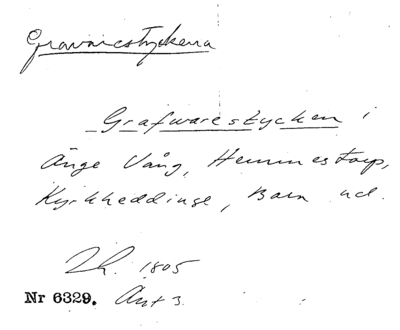 Gravarestyckena
Grafwarestycken i
Änge Vång, Hemmestorp,
Kyrkheddinge, Bara hd.
Lh. 1805
Nr 6329. Akt 3.